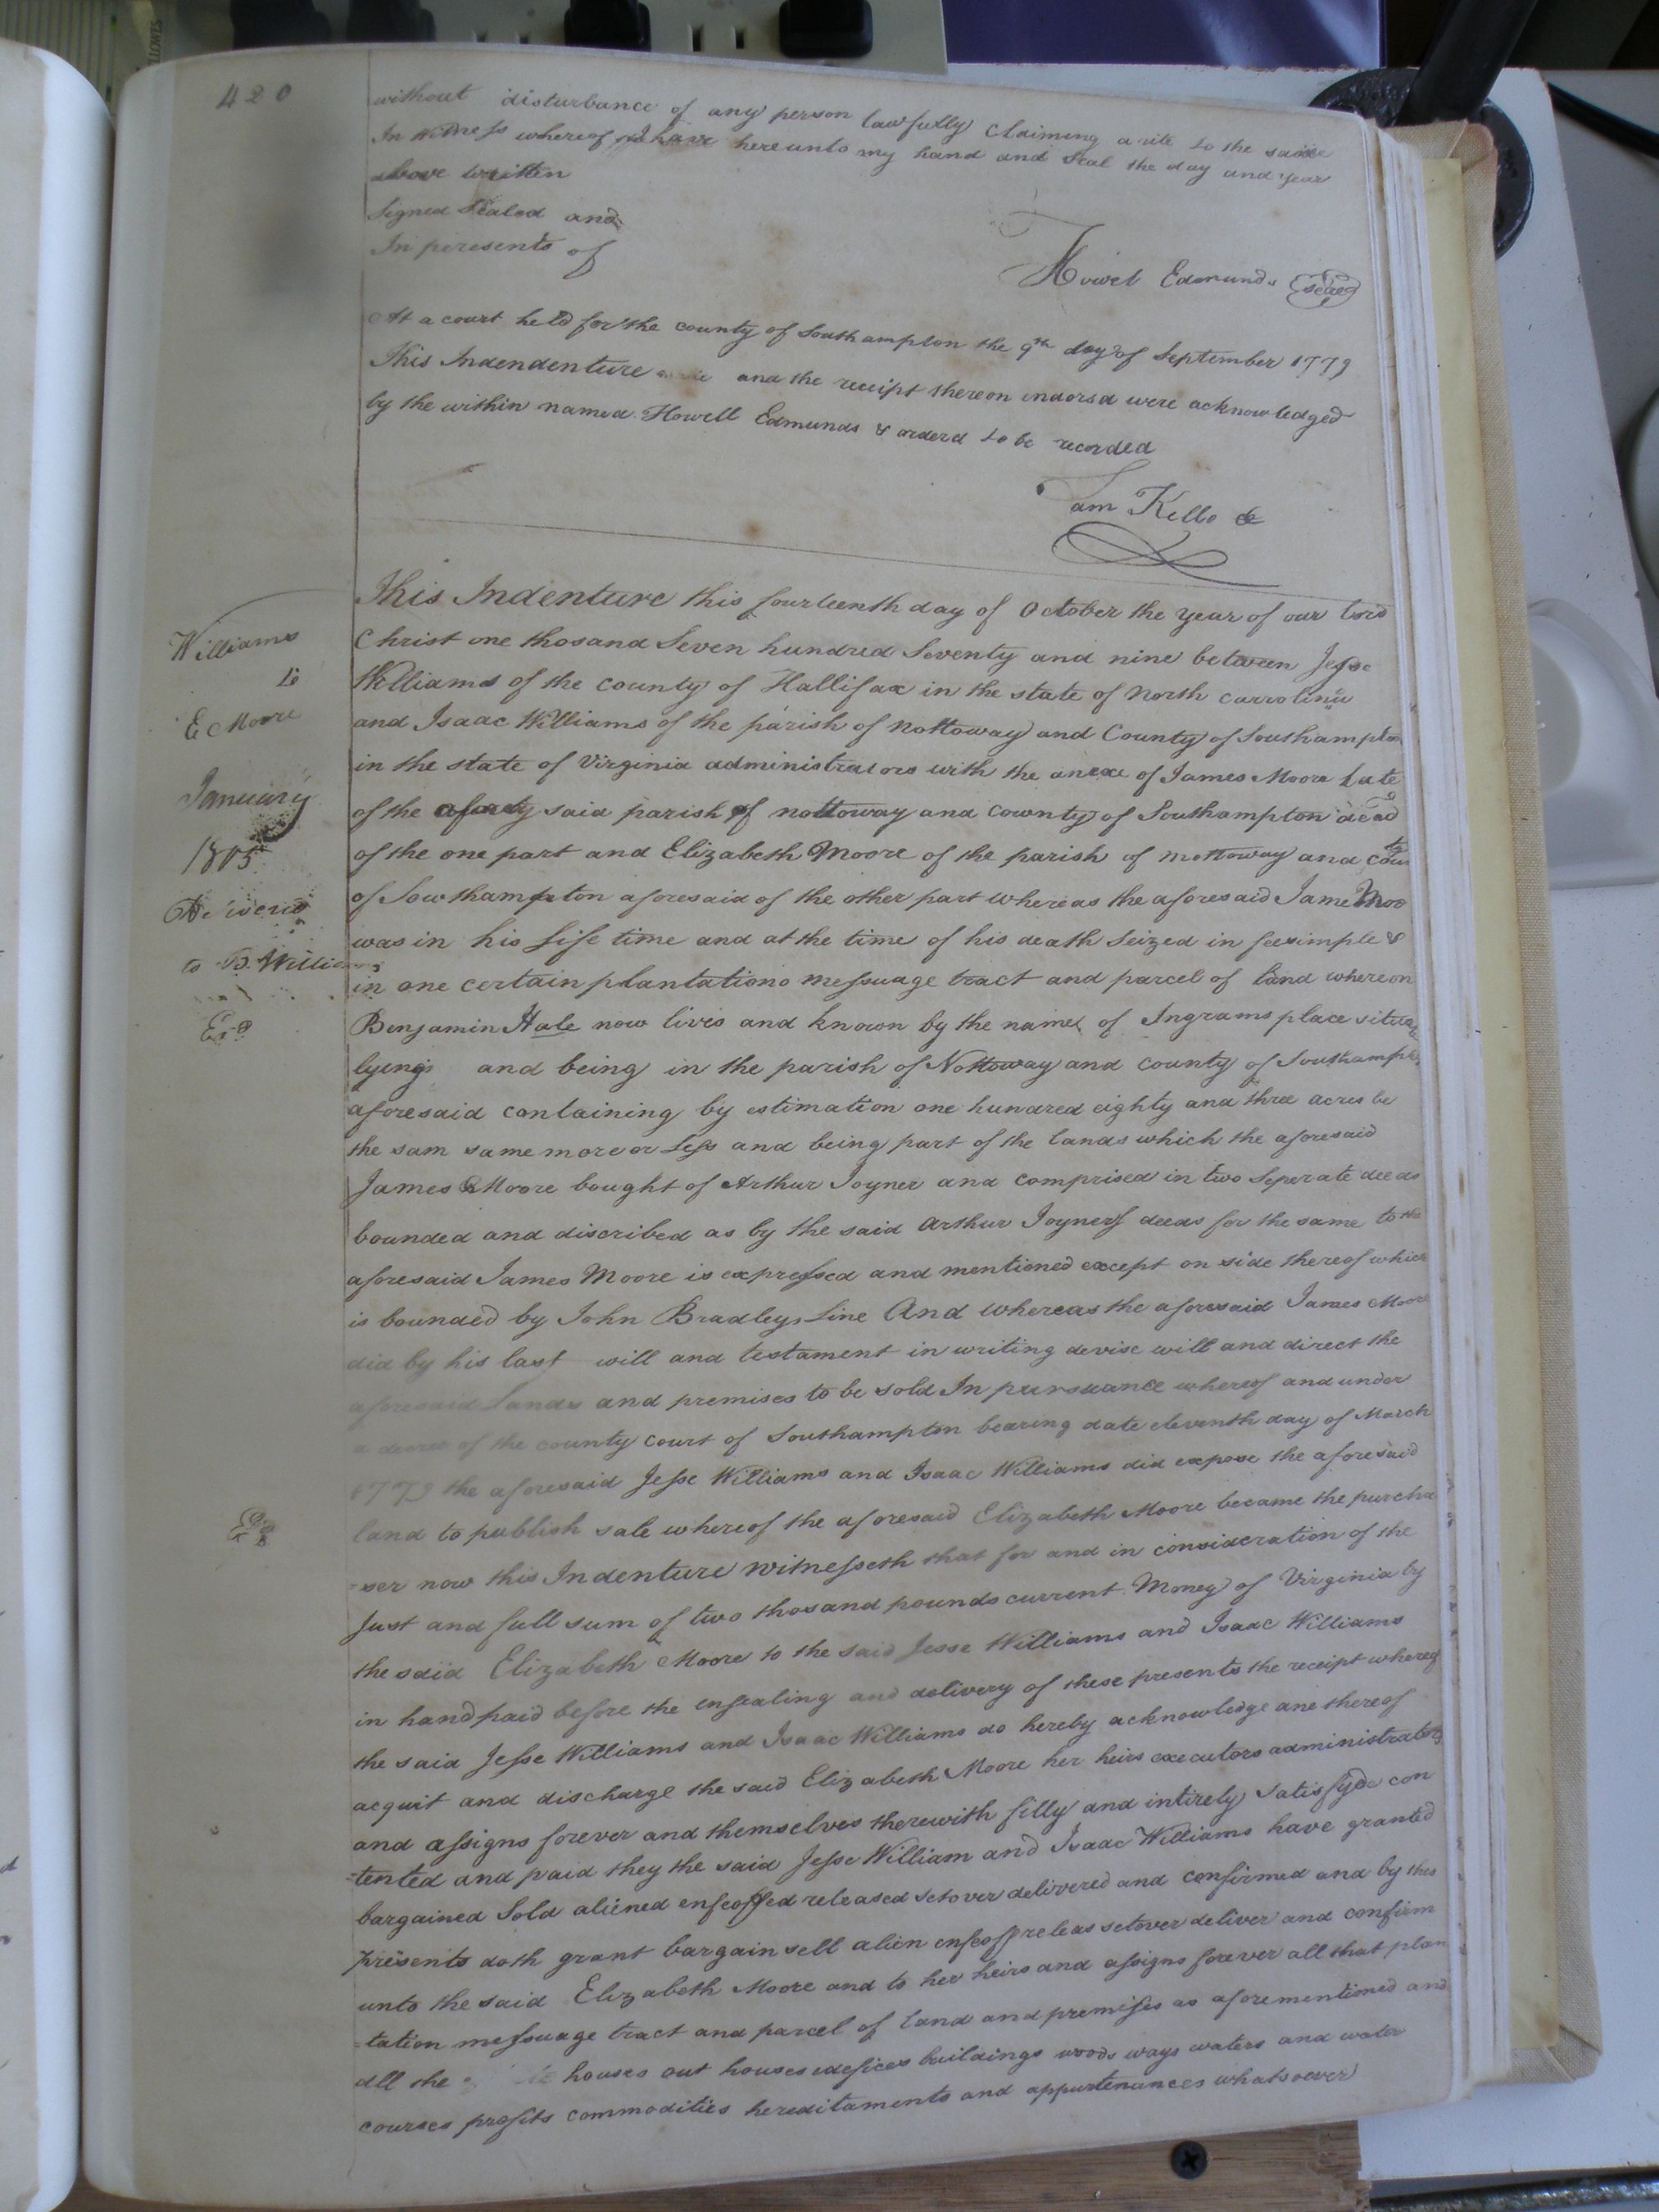 420
without disturbance of any person lawfully Claiming a rite to the same
In Witness whereof I have hereunto my hand and Seal the day and year
above written
Signed Sealed and
In presents of
Howel Edmunds seal
At a court held for the county of Southampton the 9th day of September 1779
This Indendenture and the receipt thereon indorsd were acknowledged
by the within named Howell Edmunds & orderd to be recorded
Sam Kello
This Indenture this fourteenth day of October the year of our lord
Christ one thosand Seven hundred Seventy and nine between Jesse
Williams of the county of Hallifax in the state of North carrolina
and Isaac Williams of the parish of nottoway and County of Southampton
in the state of Virginia administrators with the anexe of James Moore Late
of the said parish of nottoway and county of Southampton decd
of the one part and Elizabeth Moore of the parish of nottoway and Couty
of Sowthampton aforesaid of the other part whereas the aforesaid Jame Moo
was in his life time and at the time of his death Seized in feesimple &
in one certain plantationo messuage tract and parcel of land whereon
Benjamin Hale now lives and known by the name of Ingrams place situa
lying and being in the parish of Nottoway and county of Southampton
aforesaid containing by estimation one hundred eighty and three acres be
the sam same more or Less and being part of the lands which the aforesaid
James Moore bought of Arthur Joyner and comprised in two Seperate deeds
bounded and discribed as by the said Arthur Joyners deeds for the same to the
aforesaid James Moore is expressed and mentioned except on side thereof which
is bounded by John Bradleys Line And whereas the aforesaid James Moore
did by his last will and testament in writing devise will and direct the
aforesaid Lands and premises to be sold In pursuance whereof and under
a decree of the county court of Southampton bearing date eleventh day of March
1779 the aforesaid Jesse Williams and Isaac Williams did expose the aforesaid
land to publish sale whereof the aforesaid Elizabeth Moore became the purcha
=ser now this Indenture witnesseth that for and in consideration of the
Just and full sum of two thosand pounds current Money of Virginia by
the said Elizabeth Moore to the said Jesse Williams and Isaac Williams
in hand paid before the ensealing and delivery of these presents the receipt whereof
the said Jesse Williams and Isaac Williams do hereby acknowledge ane thereof
acquit and discharge the said Elizabeth Moore her heirs executors administrators
and assigns forever and themselves therewith filly and intirely Satisfyde con
=tented and paid they the said Jesse William and Isaac Williams have granted
bargained Sold aliened enfeoffed released setover delivered and confirmed and by thes
presents doth grant bargain sell alien enfeoff releas setover deliver and confirm
unto the said Elizabeth Moore and to her heirs and assigns forever all that plan
=tation messuage tract and parcel of land and premises as aforementioned and
all the houses out houses edefices buildings woods ways waters and water
courses profits commodities hereditaments and appurtenances whatsoever
Williams
to
E Moore
January
1805
to B. Williams